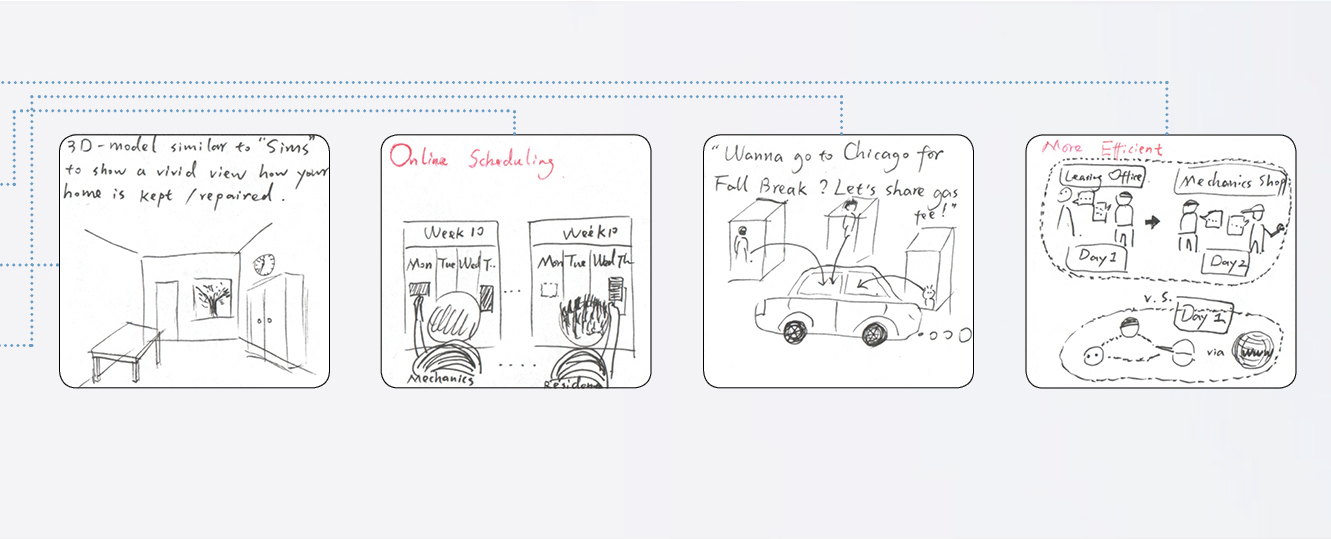 3D-model similar to "Sims"
to show a vivid view how your
home is kept / repaired.
Online Scheduling
Week 10
Mon Tue Wed T..
Mechanics
Week 10
Mon Tue Wed Th
Residen
"Wanna go to Chicago for
Fall Break? Let's share gas
fee!"
More Efficient
Leasing Office
Mechanics Shop
Day 1
Day 2
v.s.
Day 1
via
www